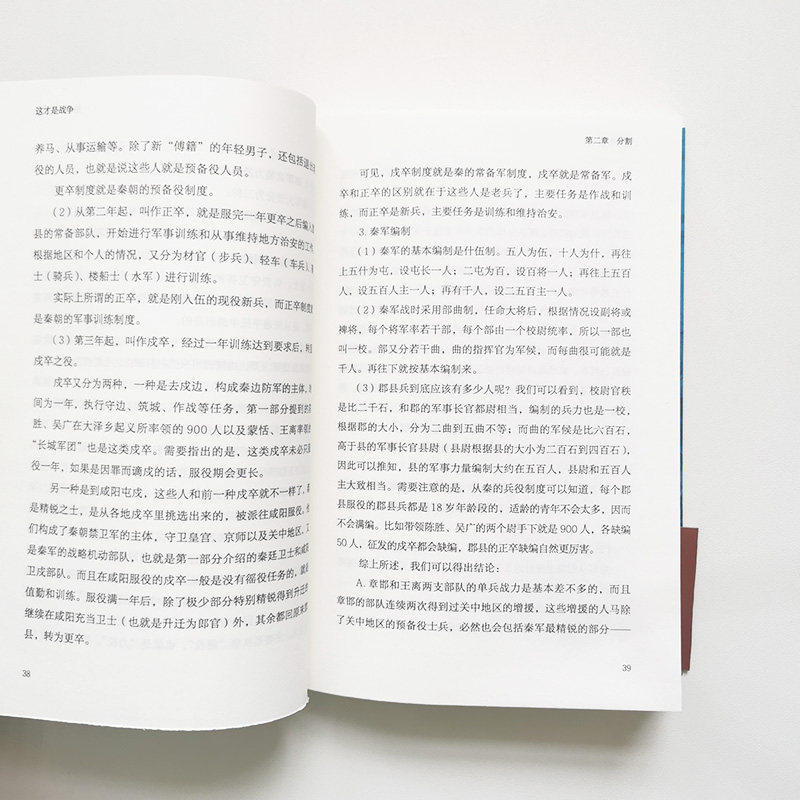 这才是战争
养马、从事运输等。除了新“傅籍”的年轻男子，还包括退出
役的人员，也就是说这些人就是预备役人员。
更卒制度就是秦朝的预备役制度。
（2）从第二年起，叫作正卒，就是服完一年更卒之后编入
县的常备部队，开始进行军事训练和从事维持地方治安的工
根据地区和个人的情况，又分为材官（步兵）、轻车（车兵）、
士（骑兵）、楼船士（水军）进行训练。
实际上所谓的正卒，就是刚入伍的现役新兵，而正卒制度
是秦朝的军事训练制度。
（3）第三年起，叫作戍卒，经过一年训练达到要求后，
戍卒之役。
戍卒又分为两种，一种是去戍边，构成秦边防军的主体，
间为一年，执行守边、筑城、作战等任务，第一部分提到的
胜、吴广在大泽乡起义所率领的900人以及蒙恬、王离率领的
“长城军团”也是这类戍卒。需要指出的是，这类戍卒未必只
役一年，如果是因罪而谪戍的话，服役期会更长。
另一种是到咸阳屯戍，这些人和前一种戍卒就不一样了，
是精锐之士，是从各地戍卒里挑选出来的，被派往咸阳服役。
们构成了秦朝禁卫军的主体，守卫皇宫、京师以及关中地区，
是秦军的战略机动部队，也就是第一部分介绍的秦廷卫士和咸
卫戍部队。而且在咸阳服役的戍卒一般是没有徭役任务的，就
值勤和训练。服役满一年后，除了极少部分特别精锐得到升迁
继续在咸阳充当卫士（也就是升迁为郎官）外，其余都回原来
县，转为更卒。
38
第二章 分割
可见，戍卒制度就是秦的常备军制度，戍卒就是常备军。戍
卒和正卒的区别就在于这些人是老兵了，主要任务是作战和训
练，而正卒是新兵，主要任务是训练和维持治安。
3. 秦军编制
（1）秦军的基本编制是什伍制。五人为伍，十人为什，再往
上五什为屯，设屯长一人；二屯为百，设百将一人；再往上五百
人，设五百主一人；再有千人，设二五百主一人。
（2）秦军战时采用部曲制，任命大将后，根据情况设副将或
裨将，每个将军率若干部，每个部由一个校尉统率，所以一部也
叫一校。部又分若干曲，曲的指挥官为军候，而每曲很可能就是
千人。再往下就按基本编制来。
（3）郡县兵到底应该有多少人呢？我们可以看到，校尉官秩
是比二千石，和郡的军事长官都尉相当，编制的兵力也是一校，
根据郡的大小，分为二曲到五曲不等；而曲的军候是比六百石，
高于县的军事长官县尉（县尉根据县的大小为二百石到四百石），
因此可以推知，县的军事力量编制大约在五百人，县尉和五百人
主大致相当。需要注意的是，从秦的兵役制度可以知道，每个郡
县服役的郡县兵都是18岁年龄段的，适龄的青年不会太多，因而
不会满编。比如带领陈胜、吴广的两个尉手下就是900人，各缺编
50人，征发的戍卒都会缺编，郡县的正卒缺编自然更厉害。
综上所述，我们可以得出结论：
A. 章邯和王离两支部队的单兵战力是基本差不多的，而且
章邯的部队连续两次得到过关中地区的增援，这些增援的人马除
了关中地区的预备役士兵，必然也会包括秦军最精锐的部分——
39